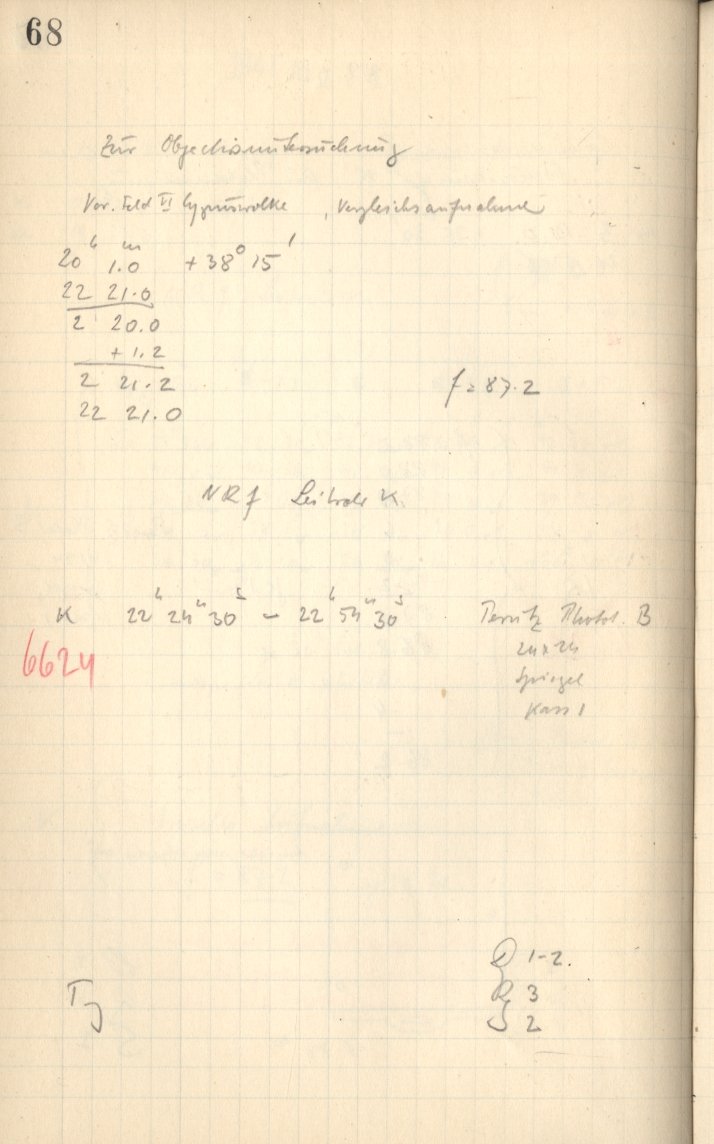 68
Zur Objectivuntersuchung
Var. Feld VI Cygnuswolke, Vergleichsaufnahme
20h 1.0m +38° 15'
22 21.0
2 20.0
+ 1.2
2 21.2
f = 87.2
22 21.0
NRf Leitrohr K
K 22h 24m 30s – 22h 54m 30s Perutz Phot. B
6624
24 x 24
Spiegel
Kass 1
D 1-2.
Tj R 3
S 2